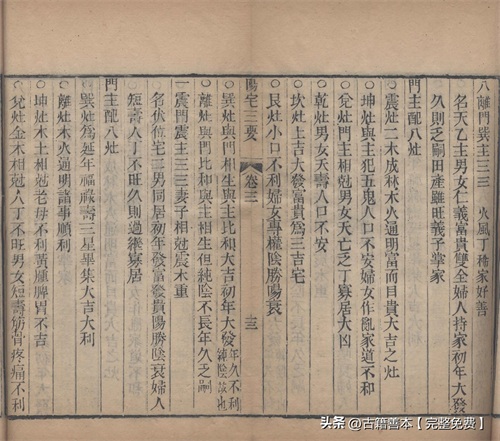 八離門巽主三三　火風丁稀家好善
名天乙主男女仁義富貴雙全婦人持家初年大發
久則乏嗣田產雖旺義子掌家
門主配八灶
○震灶二木成林木火通明富而且貴大吉之灶
○坤灶與主犯五鬼人口不安婦女作亂家道不和
○兌灶門主相尅男女夭亡丁寡居大凶
○乾灶男女夭壽人口不安
○坎灶上吉大發富貴爲三吉宅
○艮灶小口不利婦女專權陰勝陽衰
陽宅三要　卷三　十三
○巽灶與門相生與主比和大吉初年大發年久不利純陰故也
○離灶與門比和與主相生但純陰不長年久乏嗣
一震門震主三三妻子相尅震木重
名伏位宅二男同居初年發富發貴陽勝陰衰婦人
短壽人丁不旺久則過繼寡居
門主配八灶
○巽灶爲延年福祿壽三星畢集大吉大利
○離灶木火通明諸事順利
○坤灶木土相尅老母不利黃腫脾胃不吉
○兌灶金木相尅人丁不旺男女短壽筋骨疼痛不利
头条 @古籍善本【完整免费】